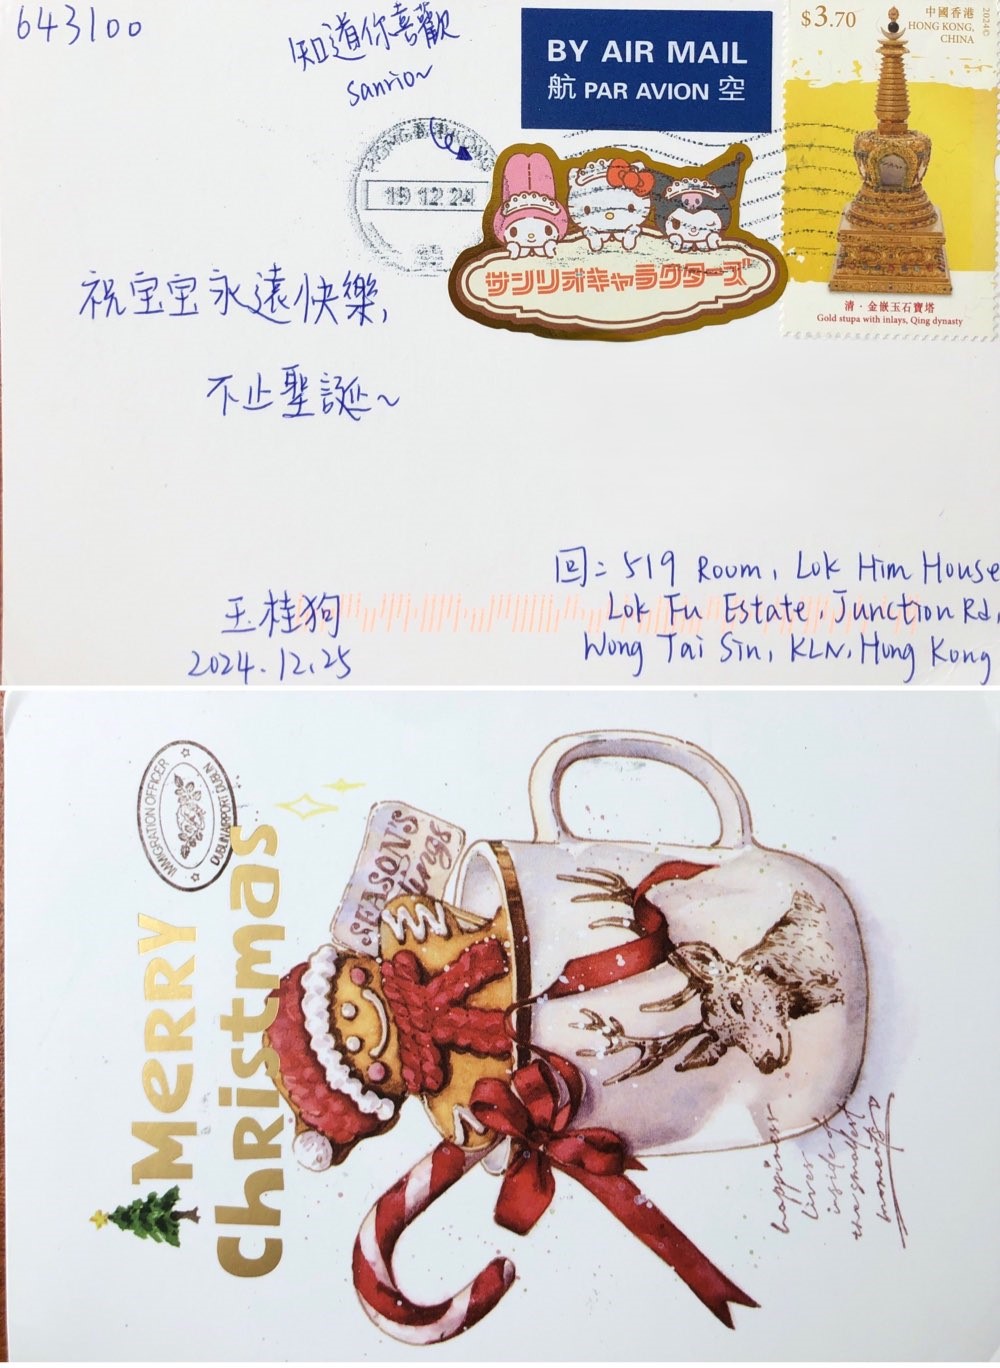 643100
知道你喜歡
sanrio~
BY AIR MAIL
航 PAR AVION 空
$3.70
中國香港
HONG KONG,
CHINA
2024©
清·金嵌玉石寶塔
Gold stupa with inlays, Qing dynasty
HONG KONG
19 12 24
サンリオキャラクターズ
祝宝宝永遠快樂,
不止聖誕~
回: 519 Room, Lok Him House
Lok Fu Estate, Junction Rd,
Wong Tai Sin, KLN, Hong Kong
王桂狗
2024.12.25
IMMIGRATION OFFICER
DUBLIN AIRPORT DUBLIN
Merry
Christmas
SEASON'S
tings
happiness
lives
inside of
the smallest
moments